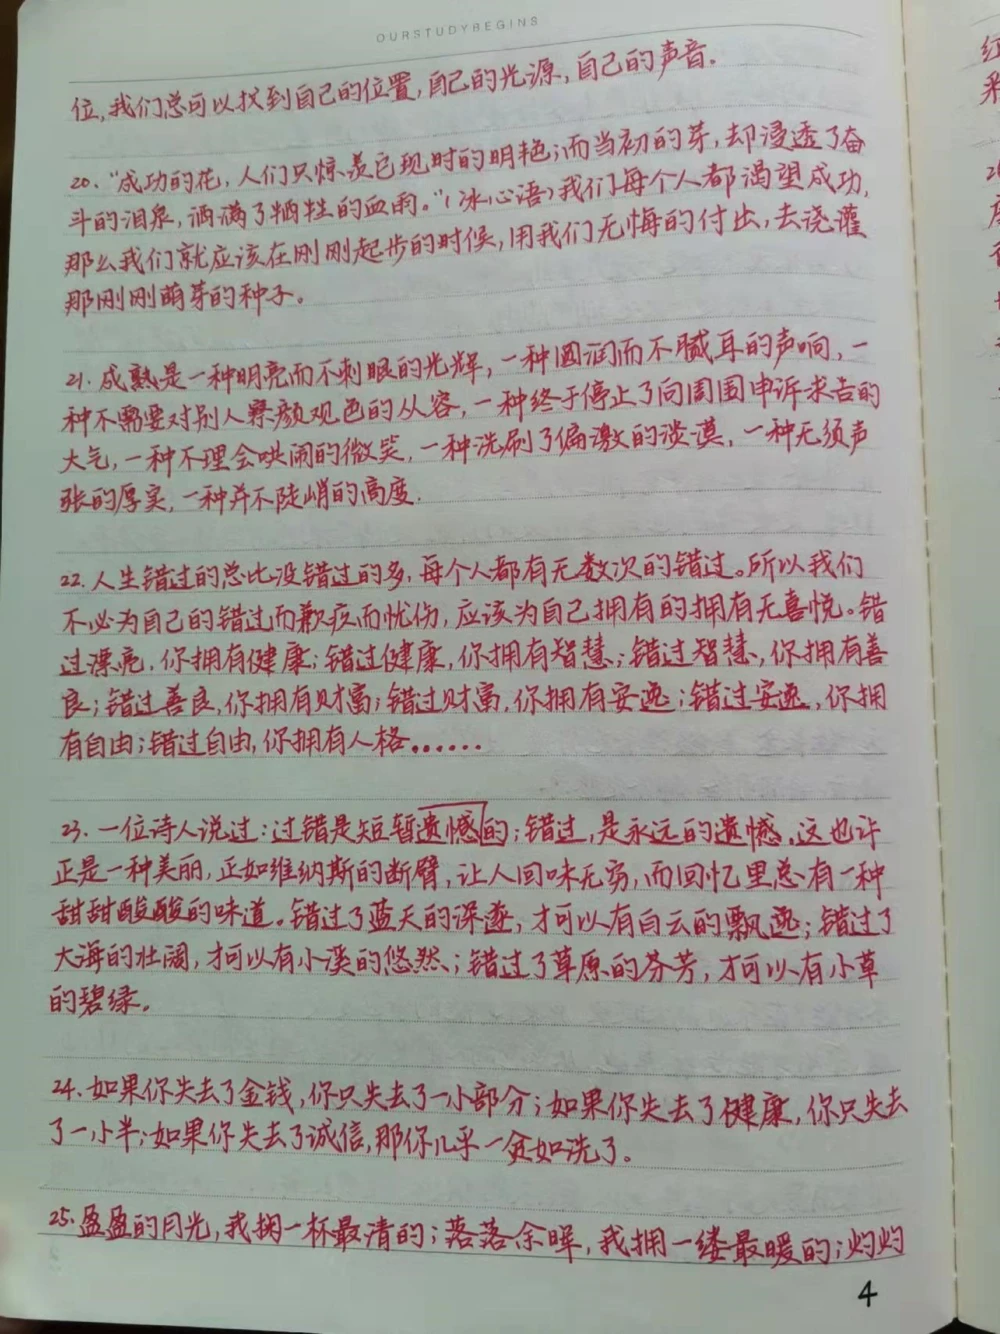 OURSTUDYBEGINS
位,我们总可以找到自己的位置,自己的光源,自己的声音.
20.“成功的花,人们只惊羡它现时的明艳;而当初的芽,却浸透了奋
斗的泪泉,洒满了牺牲的血雨。”(冰心语)我们每个人都渴望成功,
那么我们就应该在刚刚起步的时候,用我们无悔的付出,去浇灌
那刚刚萌芽的种子。
21.成熟是一种明亮而不刺眼的光辉,一种圆润而不腻耳的声响,一
种不需要对别人察颜观色的从容,一种终于停止了向周围申诉求告的
大气,一种不理会哄闹的微笑,一种洗刷了偏激的淡漠,一种无须声
张的厚实,一种并不陡峭的高度.
22.人生错过的总比没错过的多,每个人都有无数次的错过。所以我们
不必为自己的错过而歉疚而忧伤,应该为自己拥有的拥有无喜悦。错
过漂亮,你拥有健康;错过健康,你拥有智慧;错过智慧,你拥有善
良;错过善良,你拥有财富;错过财富,你拥有安逸;错过安逸,你拥
有自由;错过自由,你拥有人格......
23.一位诗人说过:过错是短暂遗憾的;错过,是永远的遗憾.这也许
正是一种美丽,正如维纳斯的断臂,让人回味无穷,而回忆里总有一种
甜甜酸酸的味道。错过了蓝天的深邃,才可以有白云的飘逸;错过了
大海的壮阔,才可以有小溪的悠然;错过了草原的芬芳,才可以有小草
的碧绿。
24.如果你失去了金钱,你只失去了一小部分;如果你失去了健康,你只失去
了一小半;如果你失去了诚信,那你几乎一贫如洗了。
25.盈盈的月光,我掬一杯最清的;落落余晖,我拥一缕最暖的;灼灼
4